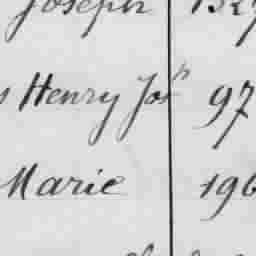 Joseph
Henry Jos^h 97
Marie 196